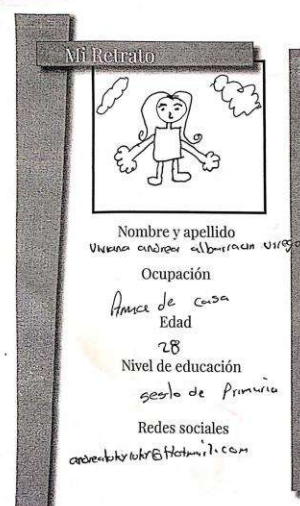 Mi Retrato
Nombre y apellido
Viviana andrea albarracin
Ocupación
Amace de casa
Edad
28
Nivel de educación
sesto de Primaria
Redes sociales